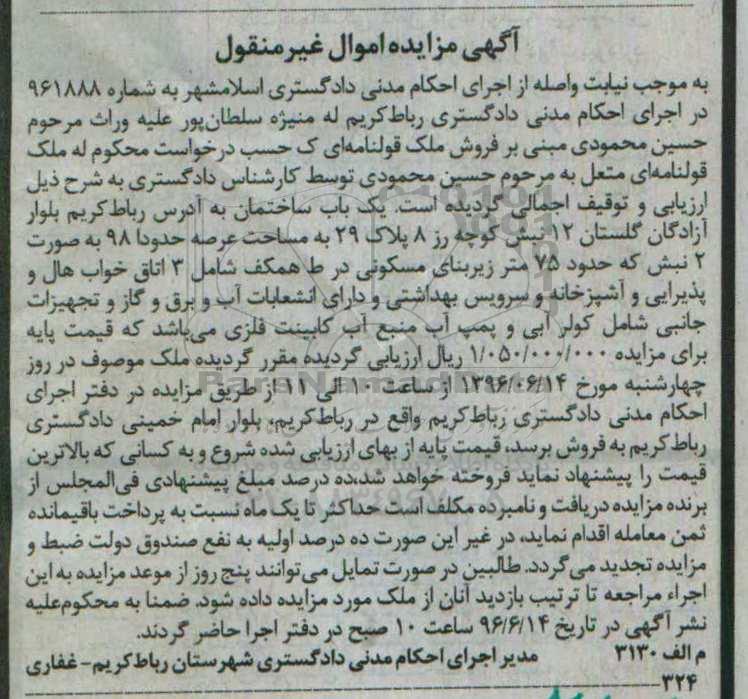 آگهی مزایده اموال غیرمنقول
به موجب نیابت واصله از اجرای احکام مدنی دادگستری اسلامشهر به شماره ۹۶۱۸۸۸
در اجرای احکام مدنی دادگستری رباط‌کریم له منیژه سلطان‌پور علیه وراث مرحوم
حسین محمودی مبنی بر فروش ملک قولنامه‌ای ک حسب درخواست محکوم له ملک
قولنامه‌ای متعل به مرحوم حسین محمودی توسط کارشناس دادگستری به شرح ذیل
ارزیابی و توقیف اجمالی گردیده است. یک باب ساختمان به آدرس رباط‌کریم بلوار
آزادگان گلستان ۱۲ نبش کوچه رز ۸ پلاک ۲۹ به مساحت عرصه حدودا ۹۸ به صورت
۲ نبش که حدود ۷۵ متر زیربنای مسکونی در ط همکف شامل ۳ اتاق خواب هال و
پذیرایی و آشپزخانه و سرویس بهداشتی و دارای انشعابات آب و برق و گاز و تجهیزات
جانبی شامل کولر آبی و پمپ آب منبع آب کابینت فلزی می‌باشد که قیمت پایه
برای مزایده ۱/۰۵۰/۰۰۰/۰۰۰ ریال ارزیابی گردیده مقرر گردیده ملک موصوف در روز
چهارشنبه مورخ ۱۳۹۶/۰۶/۱۴ از ساعت ۱۰ الی ۱۱ از طریق مزایده در دفتر اجرای
احکام مدنی دادگستری رباط‌کریم واقع در رباط‌کریم، بلوار امام خمینی دادگستری
رباط‌کریم به فروش برسد، قیمت پایه از بهای ارزیابی شده شروع و به کسانی که بالاترین
قیمت را پیشنهاد نماید فروخته خواهد شد،ده درصد مبلغ پیشنهادی فی‌المجلس از
برنده مزایده دریافت و نامبرده مکلف است حداکثر تا یک ماه نسبت به پرداخت باقیمانده
ثمن معامله اقدام نماید، در غیر این صورت ده درصد اولیه به نفع صندوق دولت ضبط و
مزایده تجدید می‌گردد. طالبین در صورت تمایل می‌توانند پنج روز از موعد مزایده به این
اجراء مراجعه تا ترتیب بازدید آنان از ملک مورد مزایده داده شود. ضمنا به محکوم‌علیه
نشر آگهی در تاریخ ۹۶/۶/۱۴ ساعت ۱۰ صبح در دفتر اجرا حاضر گردند.
م الف ۳۱۳۰ مدیر اجرای احکام مدنی دادگستری شهرستان رباط‌کریم- غفاری
۳۲۴
ParsNamadData